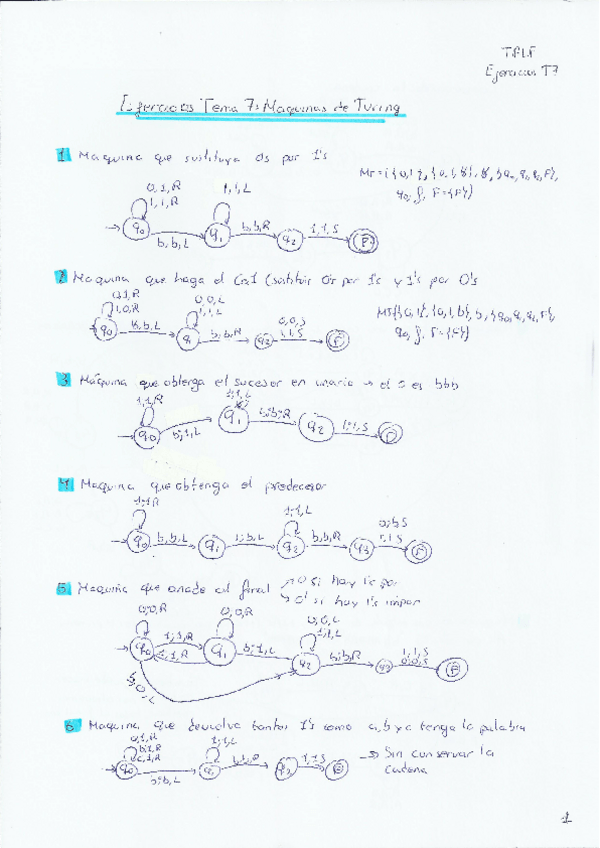 TALF
Ejercicios T7
Ejercicios Tema 7: Maquinas de Turing
1 Maquina que sustituya 0s por 1's
0,1,R
1,1,R
1,1,L
q0
b,b,L
q1
b,b,R
q2
1,1,S
F
2 Maquina que haga el Ca1 (sustituir 0's por 1's y 1's por 0's
0,1,R
1,0,R
0,0,L
1,1,L
q0
b,b,L
q1
b,b,R
q2
0,0,S
1,1,S
F
3 Máquina que obtenga el sucesor en unario → el 0 es bbb
1,1,R
1;1,L
q0
b;1,L
q1
b;b;R
q2
1;1,S
F
4 Maquina que obtenga el predecesor
1;1;R
1;1,L
q0
b,b,L
q1
1;b,L
q2
b,b,R
q3
1,1,S
F
5 Maquina que añade al final → 0 si hay 1's par
→ 0' si hay 1's impar
0,0,R
0,0,R
0,0,L
1;1,L
q0
1;1,R
1,1,R
q1
b;1,L
q2
b;b,R
q3
1,1,S
0,0,S
F
b,0,L
6 Maquina que devuelva tantos 1's como a,b y c tenga la palabra
→ Sin conservar la
cadena
b;1,R
c,1,R
1;1,L
q0
b;b,L
q1
b;b,R
q2
1;1;S
F
1